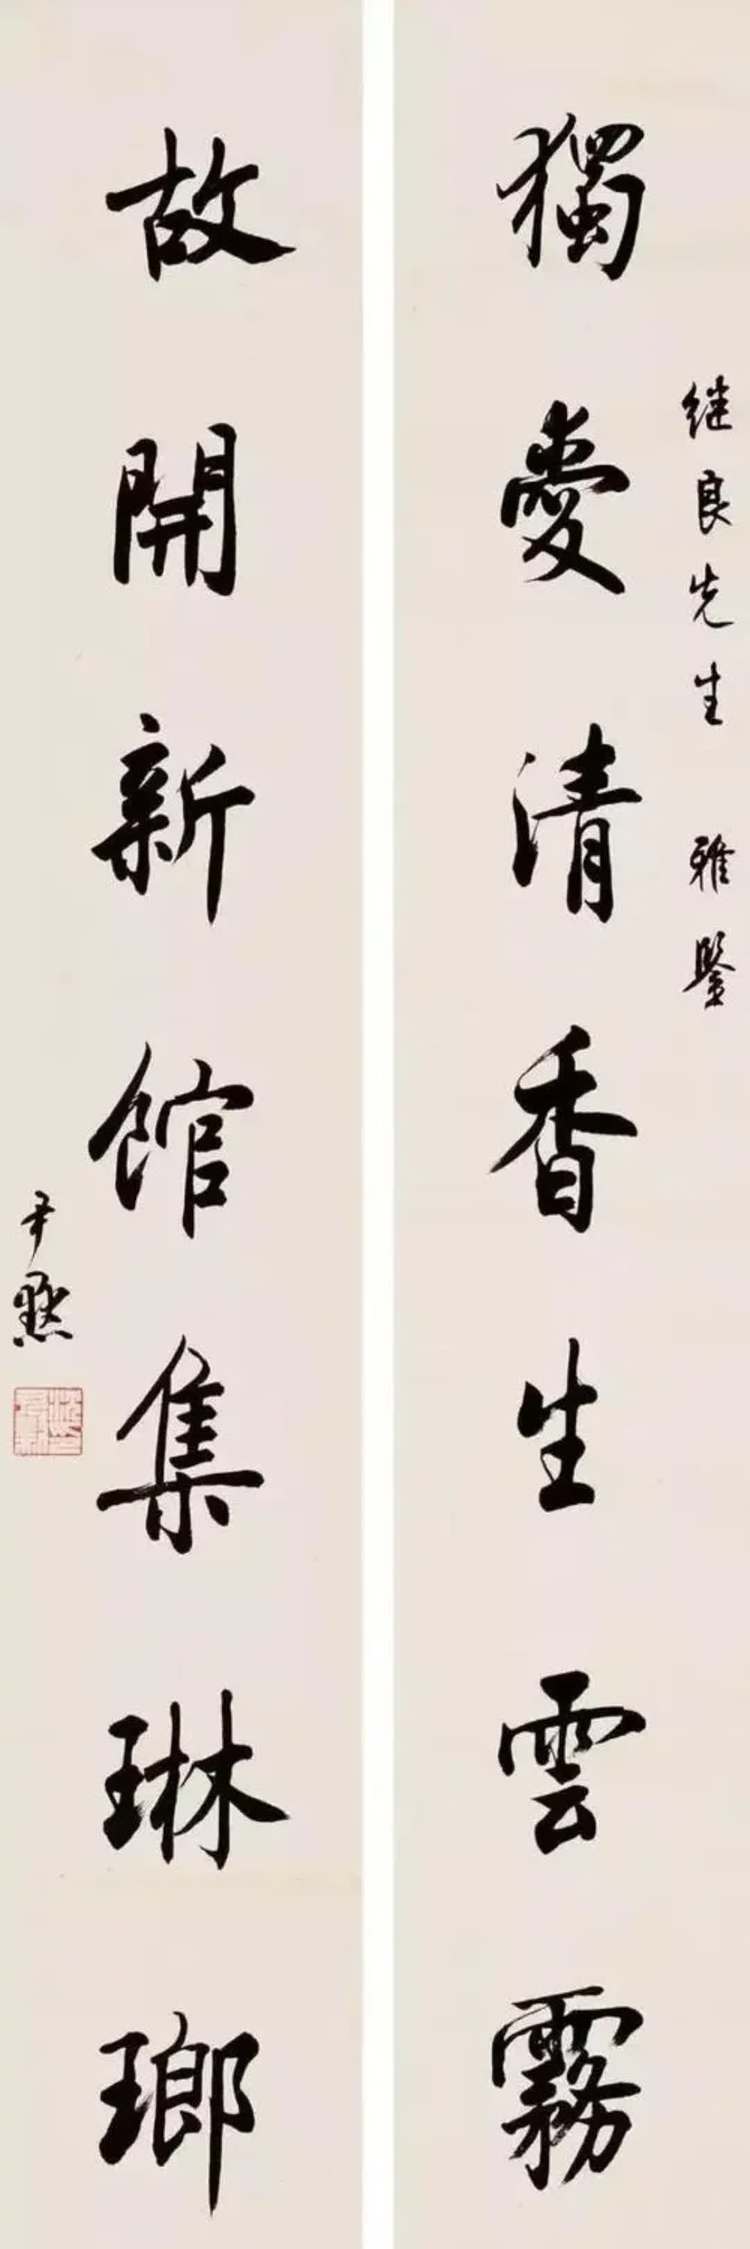 继良先生 雅鑒
獨愛清香生雲霧
故開新館集琳瑯
尹默